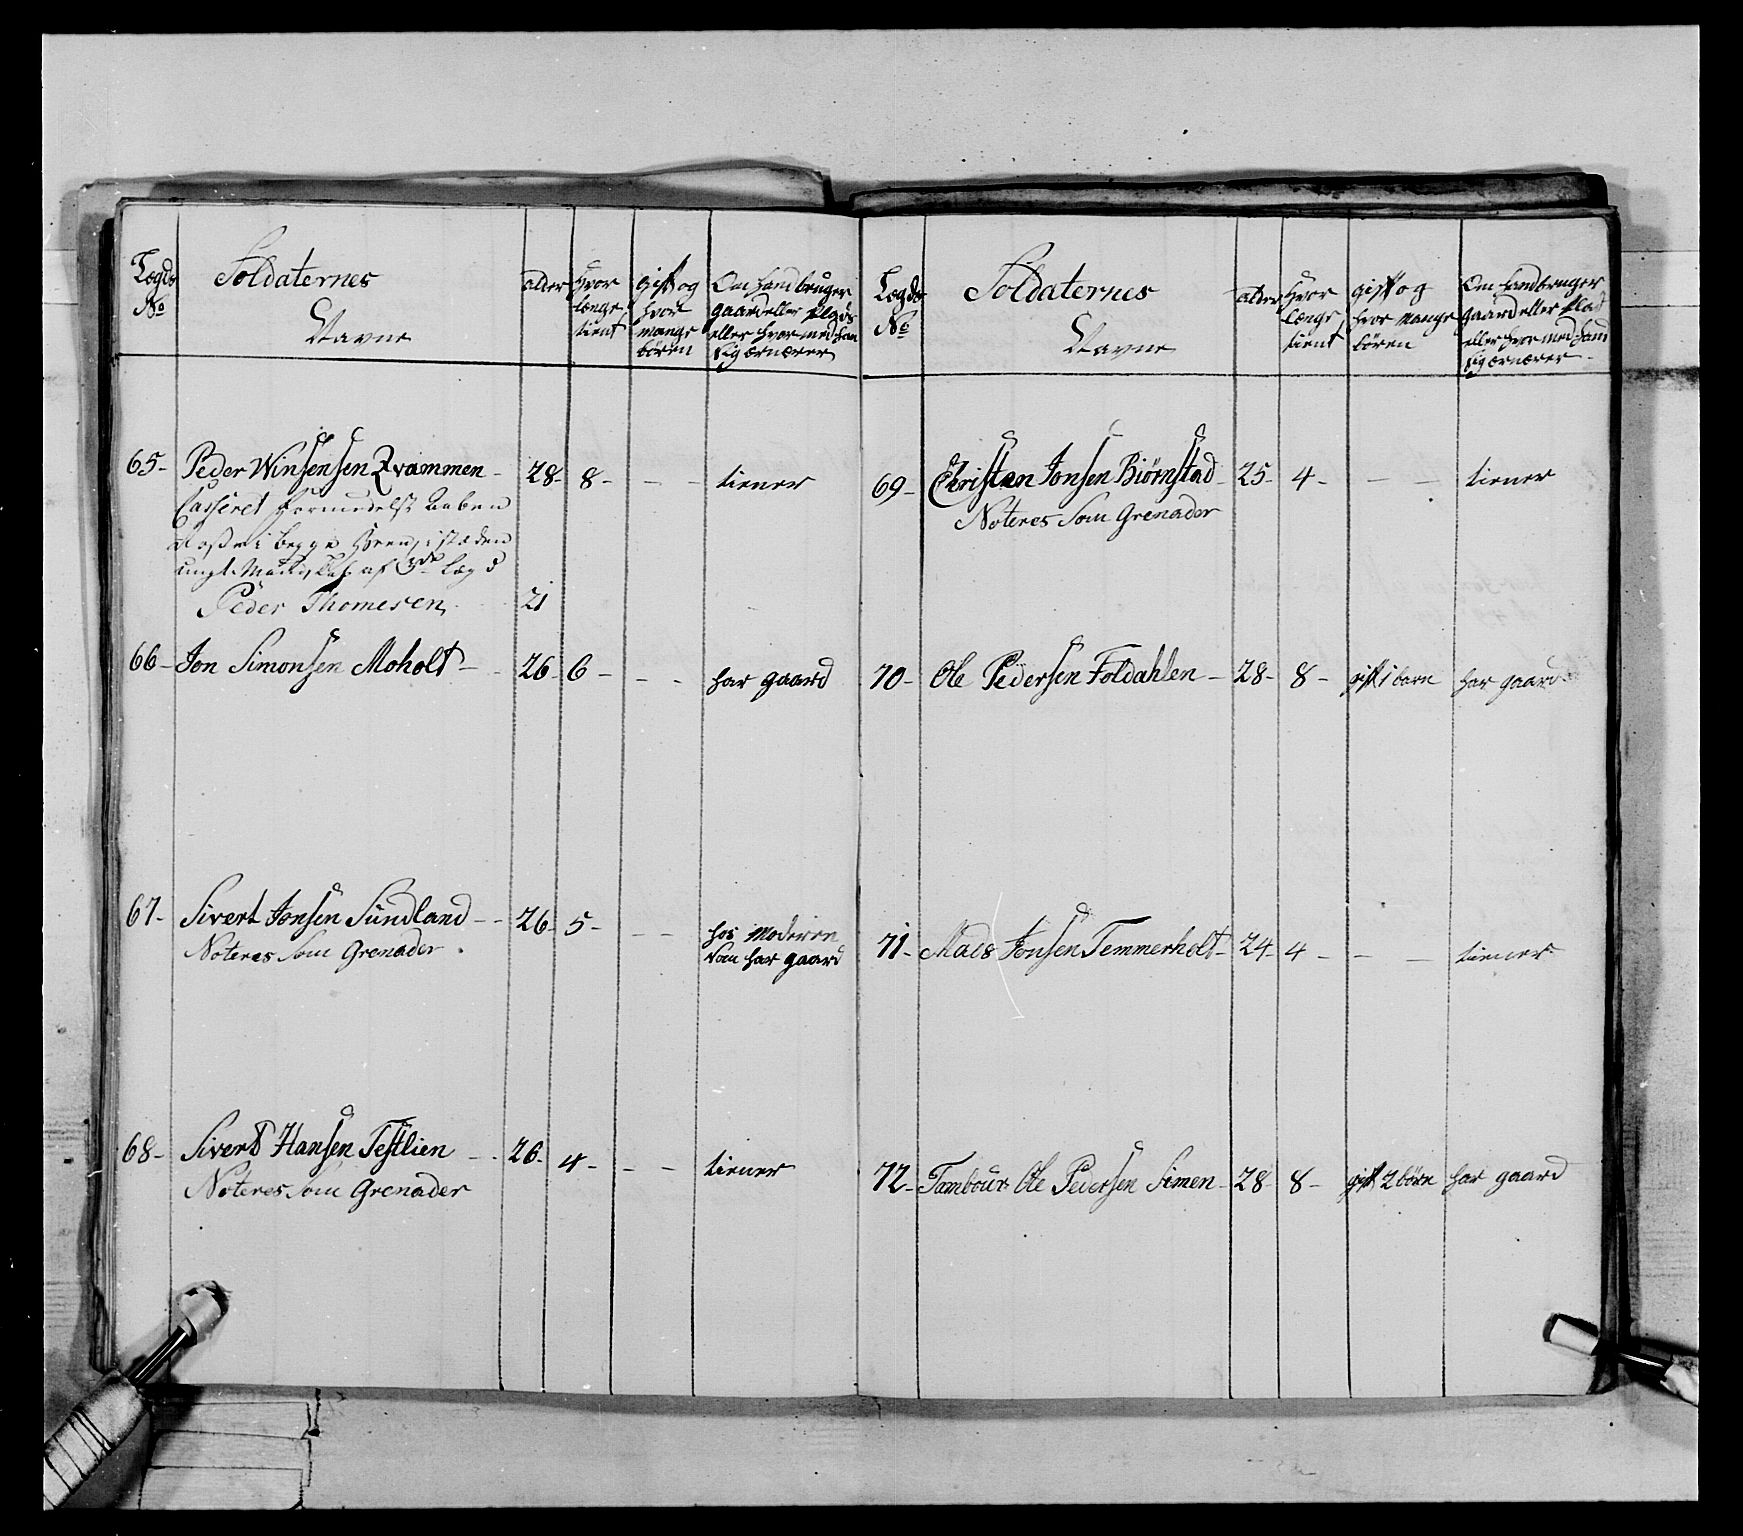 Legds No
Soldaternes Navne
alder
Hvor længe tient
gift og hvor mange børen
Om hand bruger gaard eller plads eller hvor med han sig ærnærer
65- Peder Winsensen Qvammen - 28- 8- - - tiener
Casseret formedelst Aaben
i begge i stæden
ungt Mandskab af Legd
Peder Thomesen 21
66- Jon Simonsen Moholt - 26- 6- - - har gaard
67- Sivert Jonsen Sundland - - 26- 5- - - hos Moderen
Noteres som Grenader som har gaard
68- Sivert Hansen Testlien - - 26- 4- - - tiener
Noteres som Grenader
Legds No
Soldaternes Navne
alder
Hvor længe tient
gift og hvor mange børen
Om hand bruger gaard eller plads eller hvor med hand sig ærnærer
69- Christen Jonsen Biørnstad - 25- 4- - - tiener
Noteres som Grenader
70- Ole Pedersen Foldahlen - 28- 8- gift 1 barn har gaard
71- Mads Jonsen Temmerholt - 24- 4- - - tiener
72- Tambour Ole Pedersen Simen - 28- 8- gift 2 børn har gaard